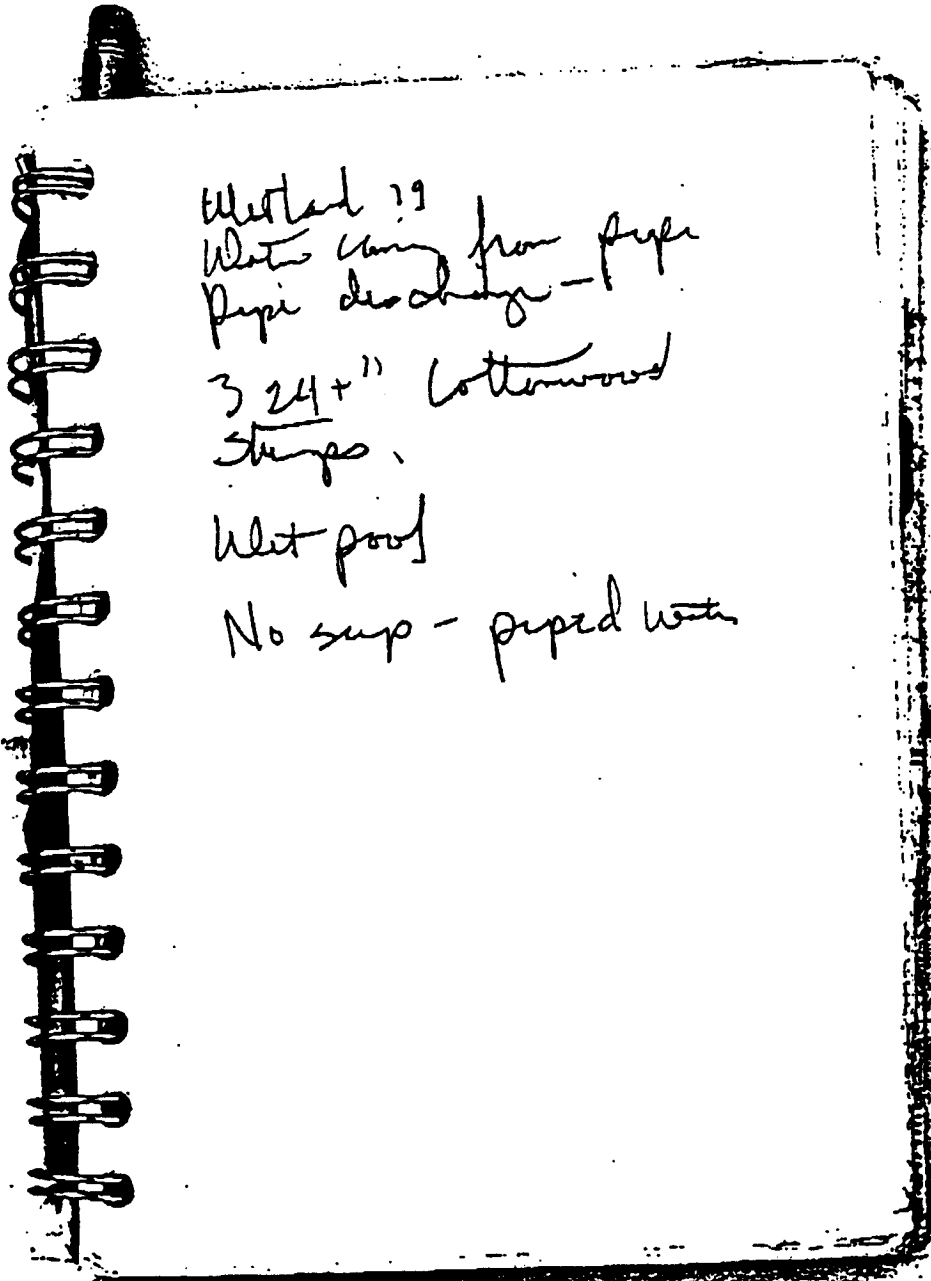 Wetland ??
Water coming from pipe
Pipe discharge –
3 24+" Cottonwood
Stumps.
Wet pool
No seep – piped water